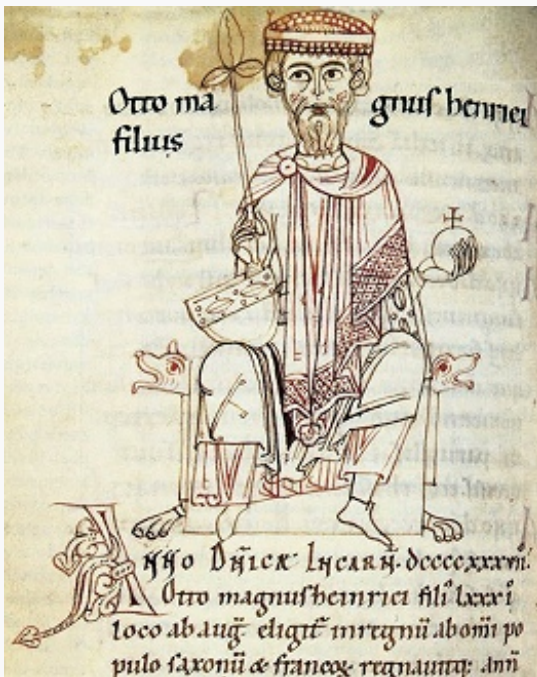 Otto magnus henrici
filius
Anno Dñice Incarñ. dccccxxxvii.
Otto magnus heinrici fili lxxxi
loco ab aug̃ eligit̃ in regnũ ab om̃i po
pulo saxonũ & francoꝝ regnauitq; ann